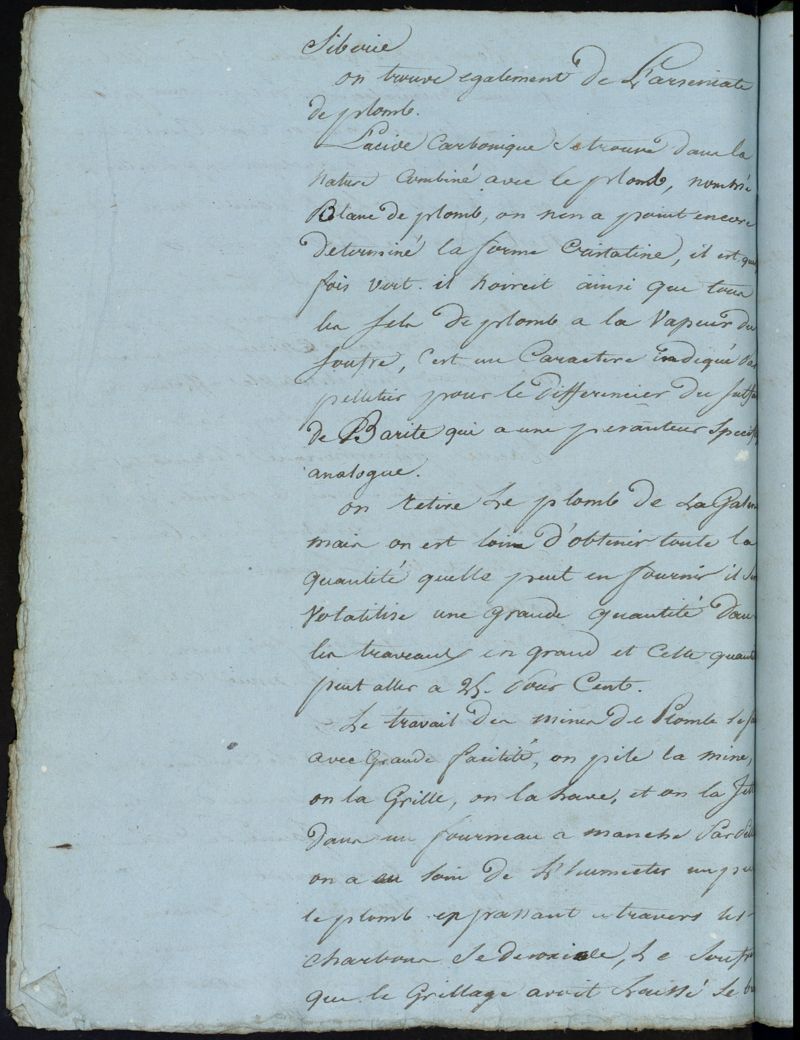 Siberie
on trouve egalement de L'arseniate
de plomb.
L'acide Carbonique se trouve dans la
nature Combiné avec le plomb, nommé
Blanc de plomb, on n'en a point encore
determiné la forme Cristaline, il est quel
fois vert. il noircit ainsi que tous
les sels de plomb a la Vapeur du
soufre, c'est un Caractere indiqué Par
pelletier pour le differencier du sulfa
de Barite qui a une pesanteur specif
analogue.
on retire Le plomb de La Galen
mais on est loin d'obtenir toute la
quantité quelle peut en fournir il se
Volatilise une grande quantité dans
les travaux en grand et cette quant
peut aller a 25. Pour Cent.
Le travail des mines de Plomb se fa
avec Grande facilité, on pile la mine,
on la Grille, on la Lave, et on la Jet
dans un fourneau a manche
on a soin de L'humecter un peu
le plomb en passant a travers les
charbons se desoxide, Le soufre
que le Grillage avoit Laissé se